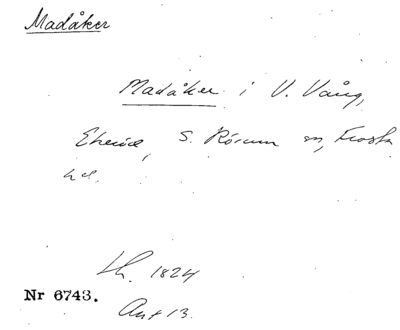 Madåker
Madåker i V. Vång,
Ekeröd, S. Rörum sn, Frosta
hd.
Lh. 1824
Nr 6743.
Avt 13.